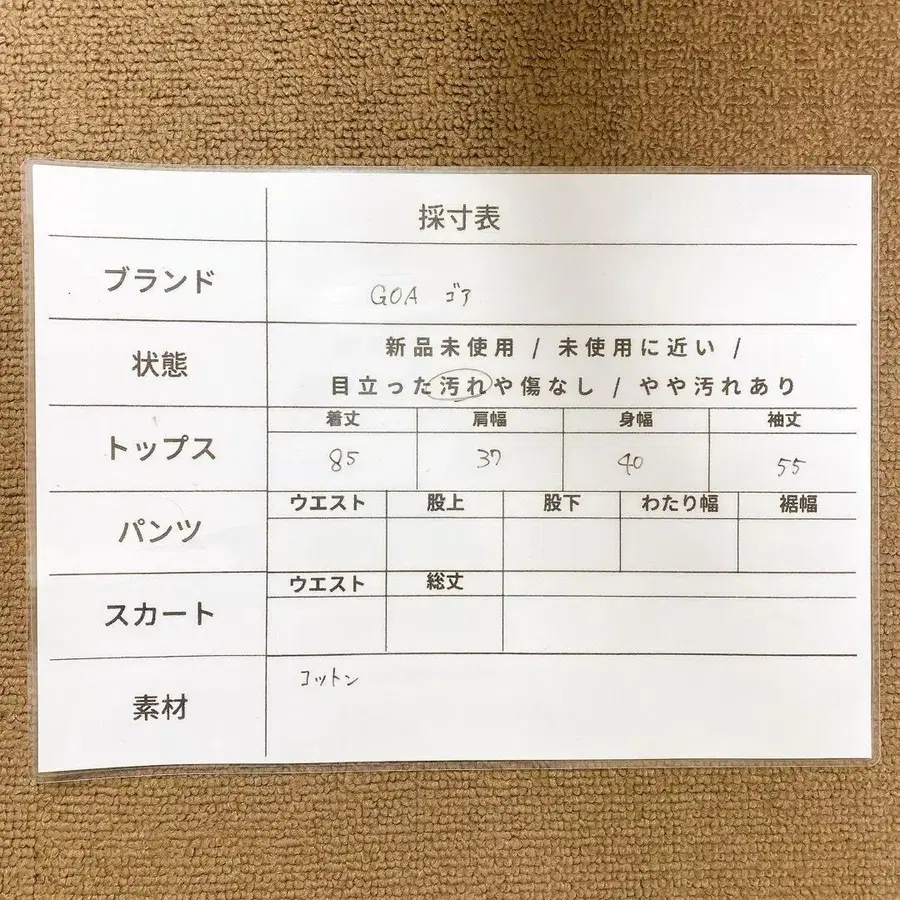 採寸表
ブランド
GOA ゴア
状態
新品未使用 / 未使用に近い /
目立った汚れや傷なし / やや汚れあり
トップス
着丈 肩幅 身幅 袖丈
85 37 40 55
パンツ
ウエスト 股上 股下 わたり幅 裾幅
スカート
ウエスト 総丈
素材
コットン